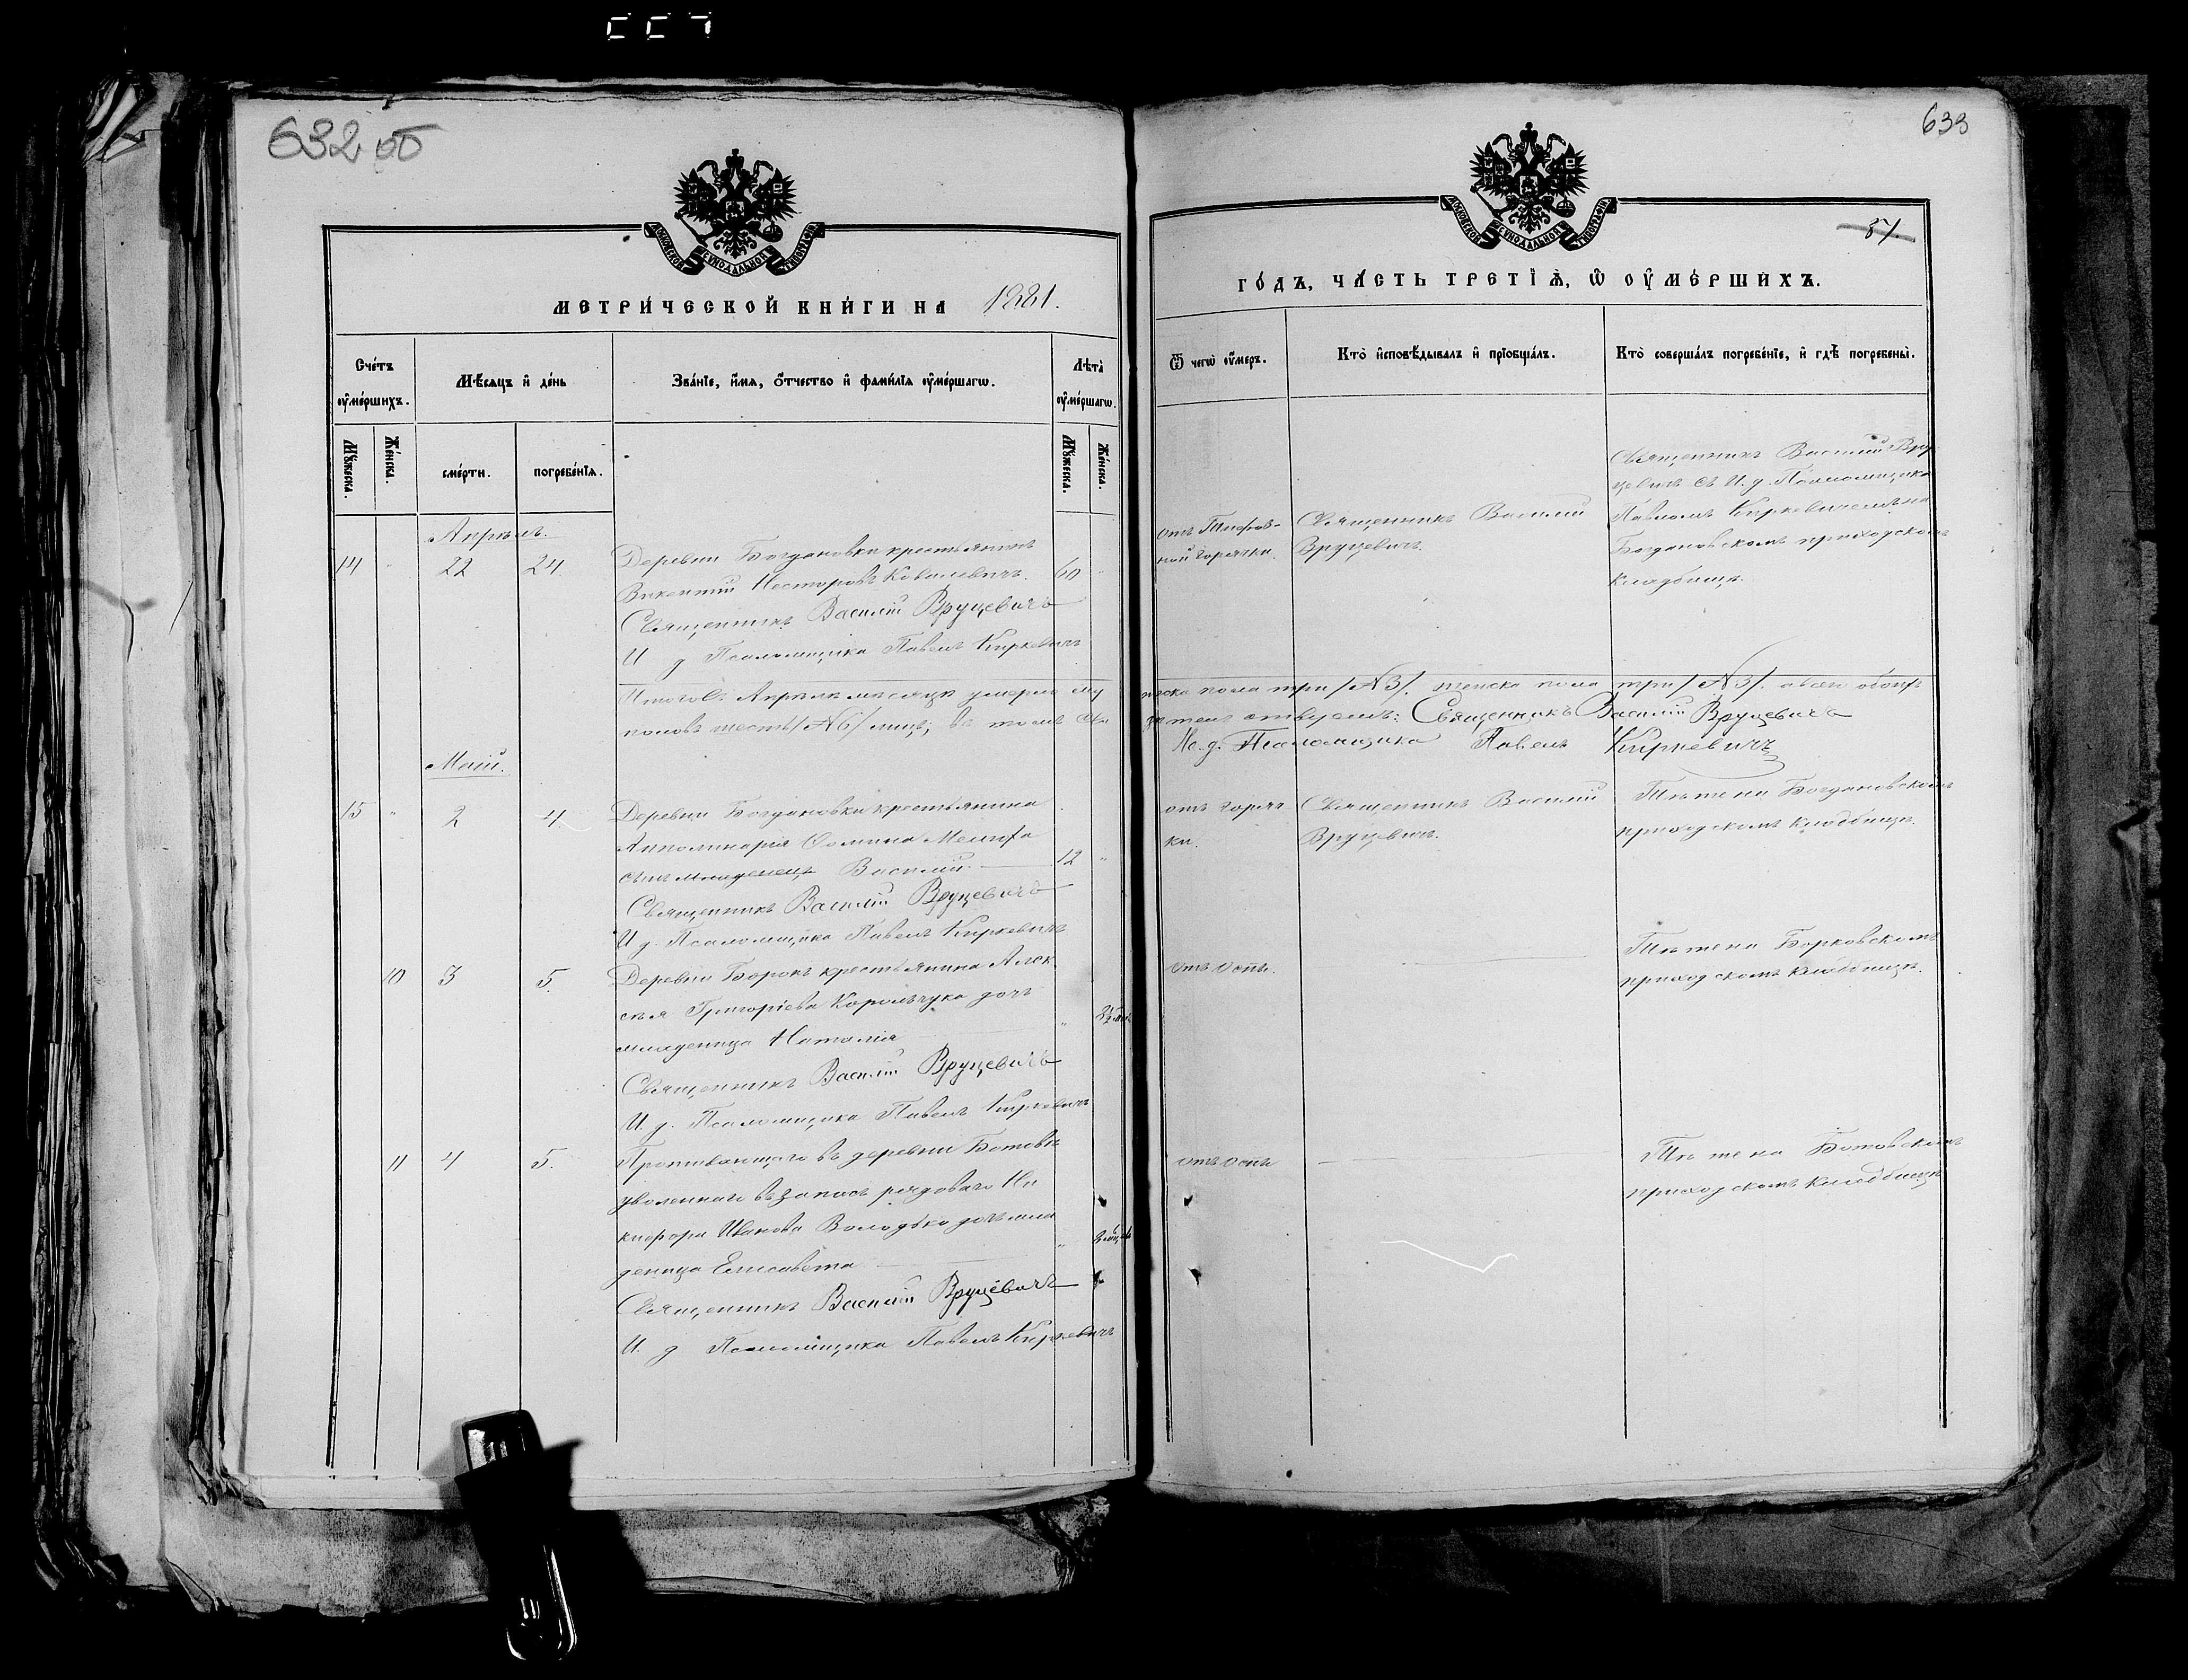 632 об
МОСКОВСКОЙ СѴНОДАЛЬНОЙ ТИПОГРАФІИ
МЕТРИ́ЧЕСКОЙ КНИ́ГИ НА 1881.
Сче́тъ ᲂу҆ме́ршихъ.
Мѣ́сяцъ и҆ де́нь
Зва́нїе, и҆́мѧ, ѻ҆́тчество и҆ фами́лїѧ ᲂу҆ме́ршагѡ.
Лѣ́та ᲂу҆ме́ршагѡ.
Мꙋ́жеска.
Же́нска.
сме́рти.
погребе́нїѧ.
Мꙋ́жеска.
Же́нска.
Апрѣль.
14 " 22 24. Деревни Богдановки крестьянинъ
Викентій Несторовъ Ковалевичъ. 60 "
Священникъ Василій Вруцевичъ
И д Псаломщика Павелъ Киркевичъ
Итого въ Апрѣлѣ мѣсяцѣ умерло му
половъ шесть /№6/ лицъ; въ томъ
Маій.
15 " 2 4. Деревни Богдановки крестьянина
Апполинарія Ѳомина
сынъ младенецъ Василій. 12 "
Священникъ Василій Вруцевичъ
И д. Псаломщика Павелъ Киркевичъ
10 3 5. Деревни Борокъ крестьянина Алек
сѣя Григоріева Корольчука дочь
младеница Наталія "
Священникъ Василій Вруцевичъ
И. д. Псаломщика Павелъ Киркевичъ
11 4 5. Проживающаго въ деревни Ботовѣ
уволеннаго въ запасъ рядоваго Ни
кифора Иванова Володько дочь мла
деница Елисавета "
Священникъ Василій Вруцевичъ
И. д Псаломщика Павелъ Киркевичъ
633
87
МОСКОВСКОЙ СѴНОДАЛЬНОЙ ТИПОГРАФІИ
ГО́ДЪ, ЧА́СТЬ ТРЕТЇѦ, Ѡ ОУ҆МЕ́РШИХЪ.
Ѿ чегѡ̀ ᲂу҆́меръ.
Кто̀ и҆сповѣ́дывалъ и҆ прїобща́лъ.
Кто̀ соверша́лъ погребе́нїе, и҆ гдѣ̀ погребены̀.
отъ Тифоз-
ной горячки.
Священникъ Василій
Вруцевичъ.
Священникъ Василій Вру
цевичъ съ И. д. Псаломщика
Павломъ Киркевичемъ на
Богдановскомъ приходскомъ
кладбищѣ.
жеска пола три /№3/. женска пола три /№3/. а всѣхъ обоихъ
Священникъ Василій Вруцевичъ
И. д. Псаломщика Павелъ Киркевичъ
отъ горяч
ки.
Священникъ Василій
Вруцевичъ.
Тѣ же на Богдановскомъ
приходскомъ кладбищѣ.
отъ оспы.
Тѣ же на Борковскомъ
приходскомъ кладбищѣ.
отъ оспы
Тѣ же на Ботовскомъ
приходскомъ кладбищѣ